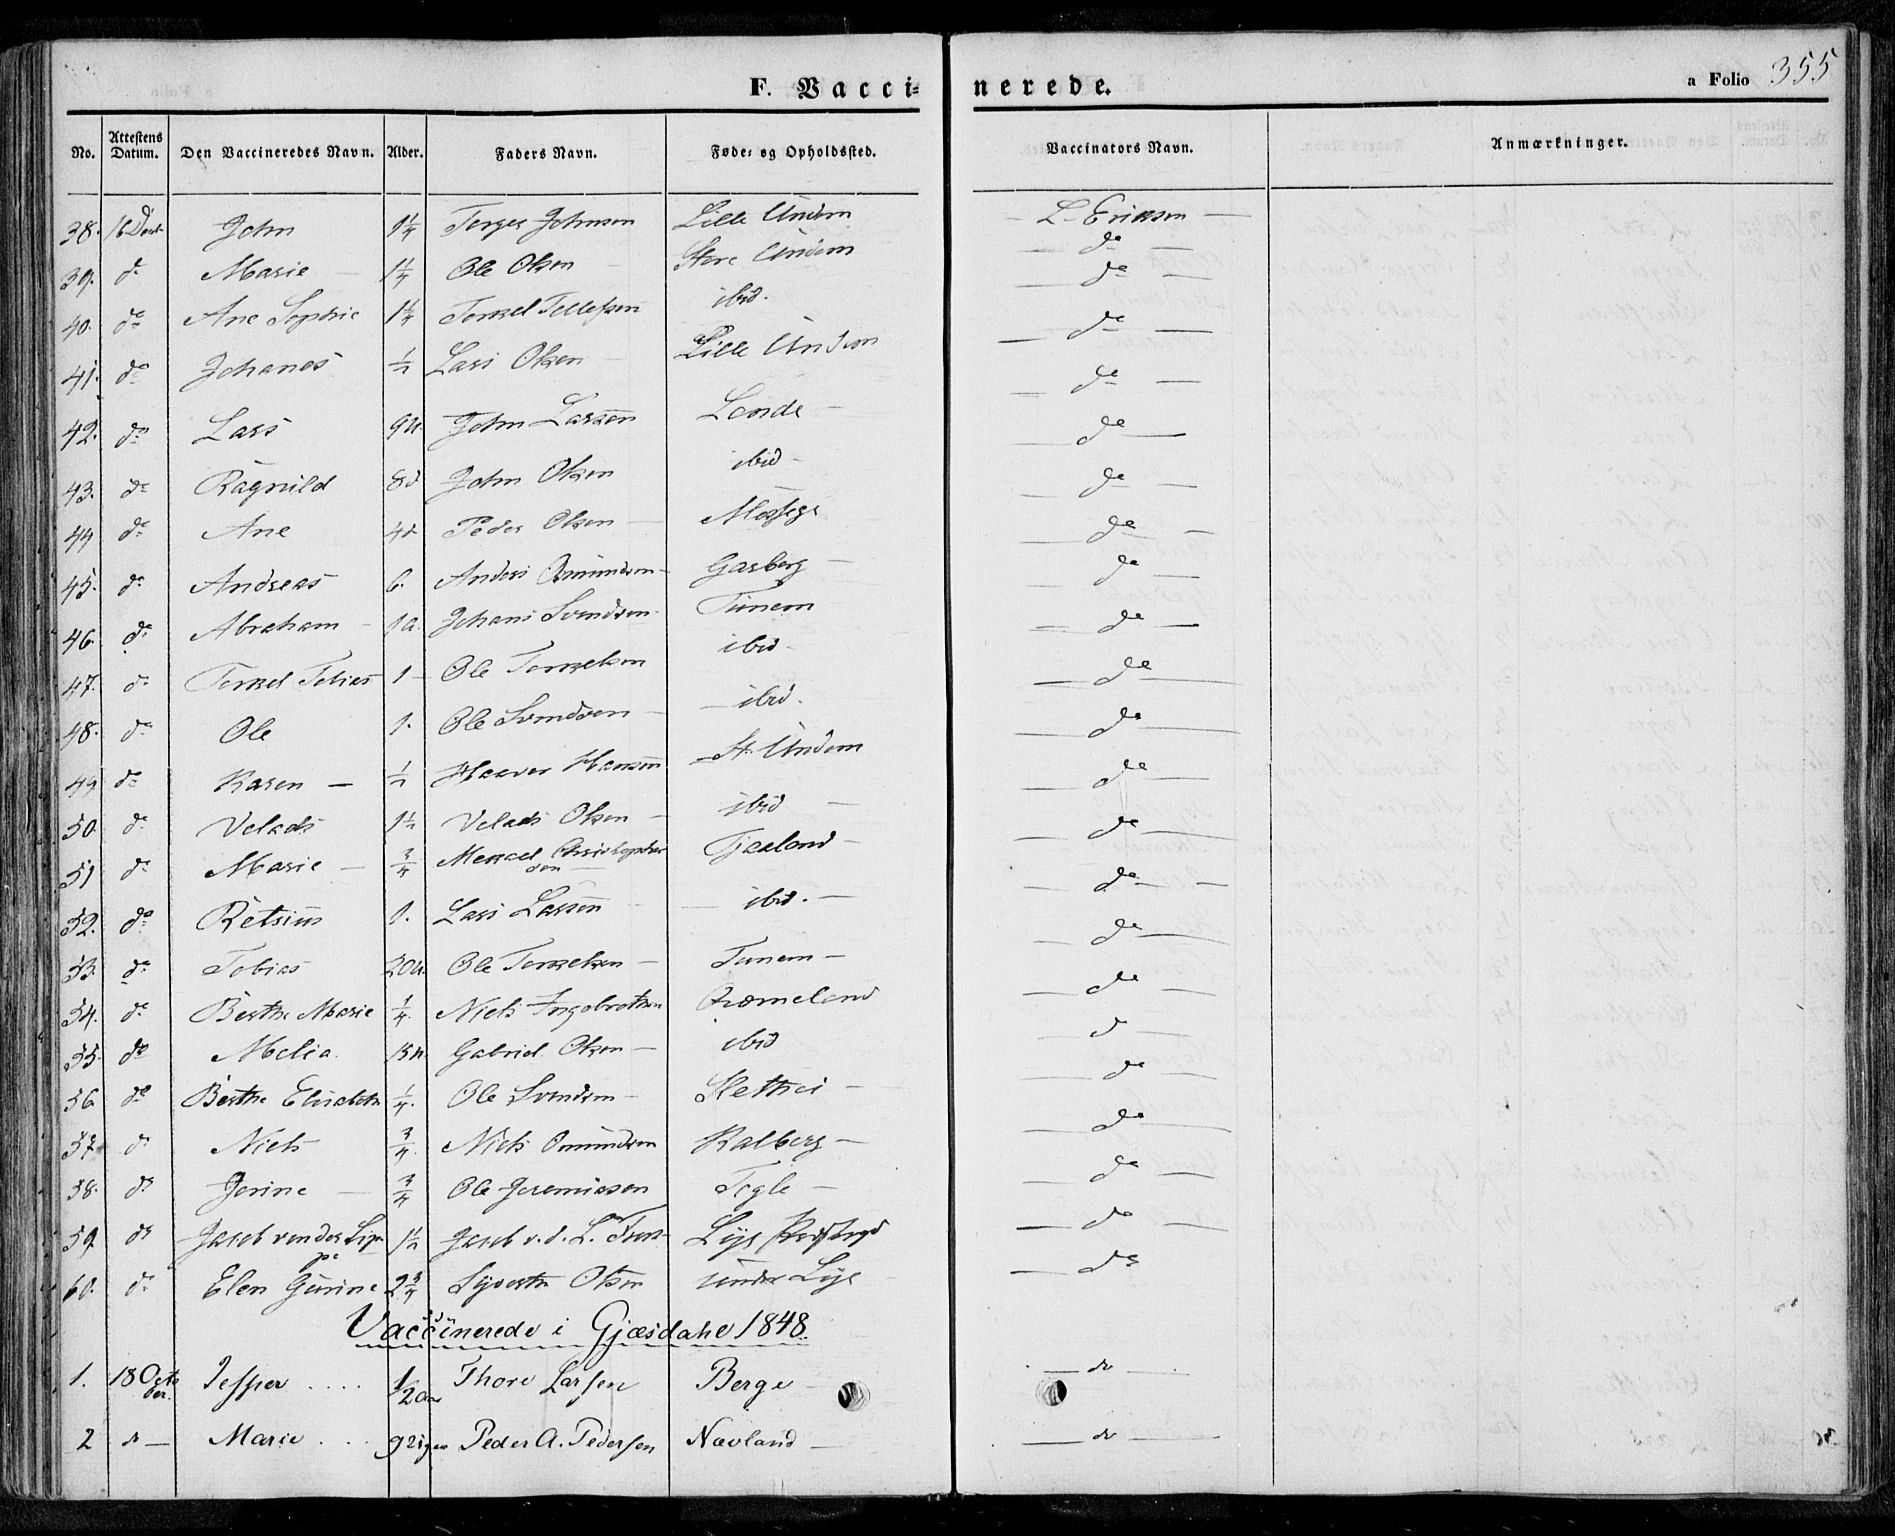 F. Vacci- nerede.
a Folio 355
No. Attestens Datum. Den Vaccineredes Navn. Alder. Faders Navn. Føde- og Opholdssted. Vaccinators Navn. Anmærkninger.
38. 16 John 1 1/4 Johnsen Lille Undem L. Eriksen
39. do Marie 1 1/4 Ole Olsen Store Undem do
40. do Ane Sophie 1 1/4 Torkel Tellefsen ibid. do
41. do Johanes 1/2 Lars Olsen Lille Undem do
42. do Lars 9 U. John Larsen Lende do
43. do Ragnild 8 d John Olsen ibid do
44 do Ane 4 d Peder Olsen Mossige do
45. do Andreas 6. Anders Omundsen Garberg do
46. do Abraham 1 a. Johans Svendsen Tunem do
47. do Torkel Tobias 1 Ole Torkelsen ibid do
48. do Ole 1. Ole Svendsen ibid. do
49 do Karen 1/2 Haaver Hansen St. Undem do
50. do Velads 1 1/2 Velads Olsen ibid do
51 do Marie 3/4 Menkel Christophersen Tjaaland do
52. do Retsius 1. Lars Larsen ibid. do
53. do Tobias 20 U. Ole Torkelsen Tunem do
54. do Berthe Marie 1/4. Niels Ingebretsen Qværneland do
55. do Melia 15 U. Gabriel Olsen ibid d
56 do Berthe Elisabeth 1/4. Ole Svendsen Slethei do
57 do Niels 3/4. Niels Omundsen Kalberg do
58. do Jorine 3/4 Ole Jeremiasen Tegle do
59. do Jacob von der Lippe 1 1/2 Jacob v. d. L. Lye do
60. do Elen Gurine 2 3/4 Syvert Olsen under Lye do
Vaccinerede i Gjæsdahl 1848.
1. 18 October. Jesper .... 1/2 Aar Thore Larsen Berge do
2 do Marie ... 9 Uger Peder A. Pedersen Nævland do